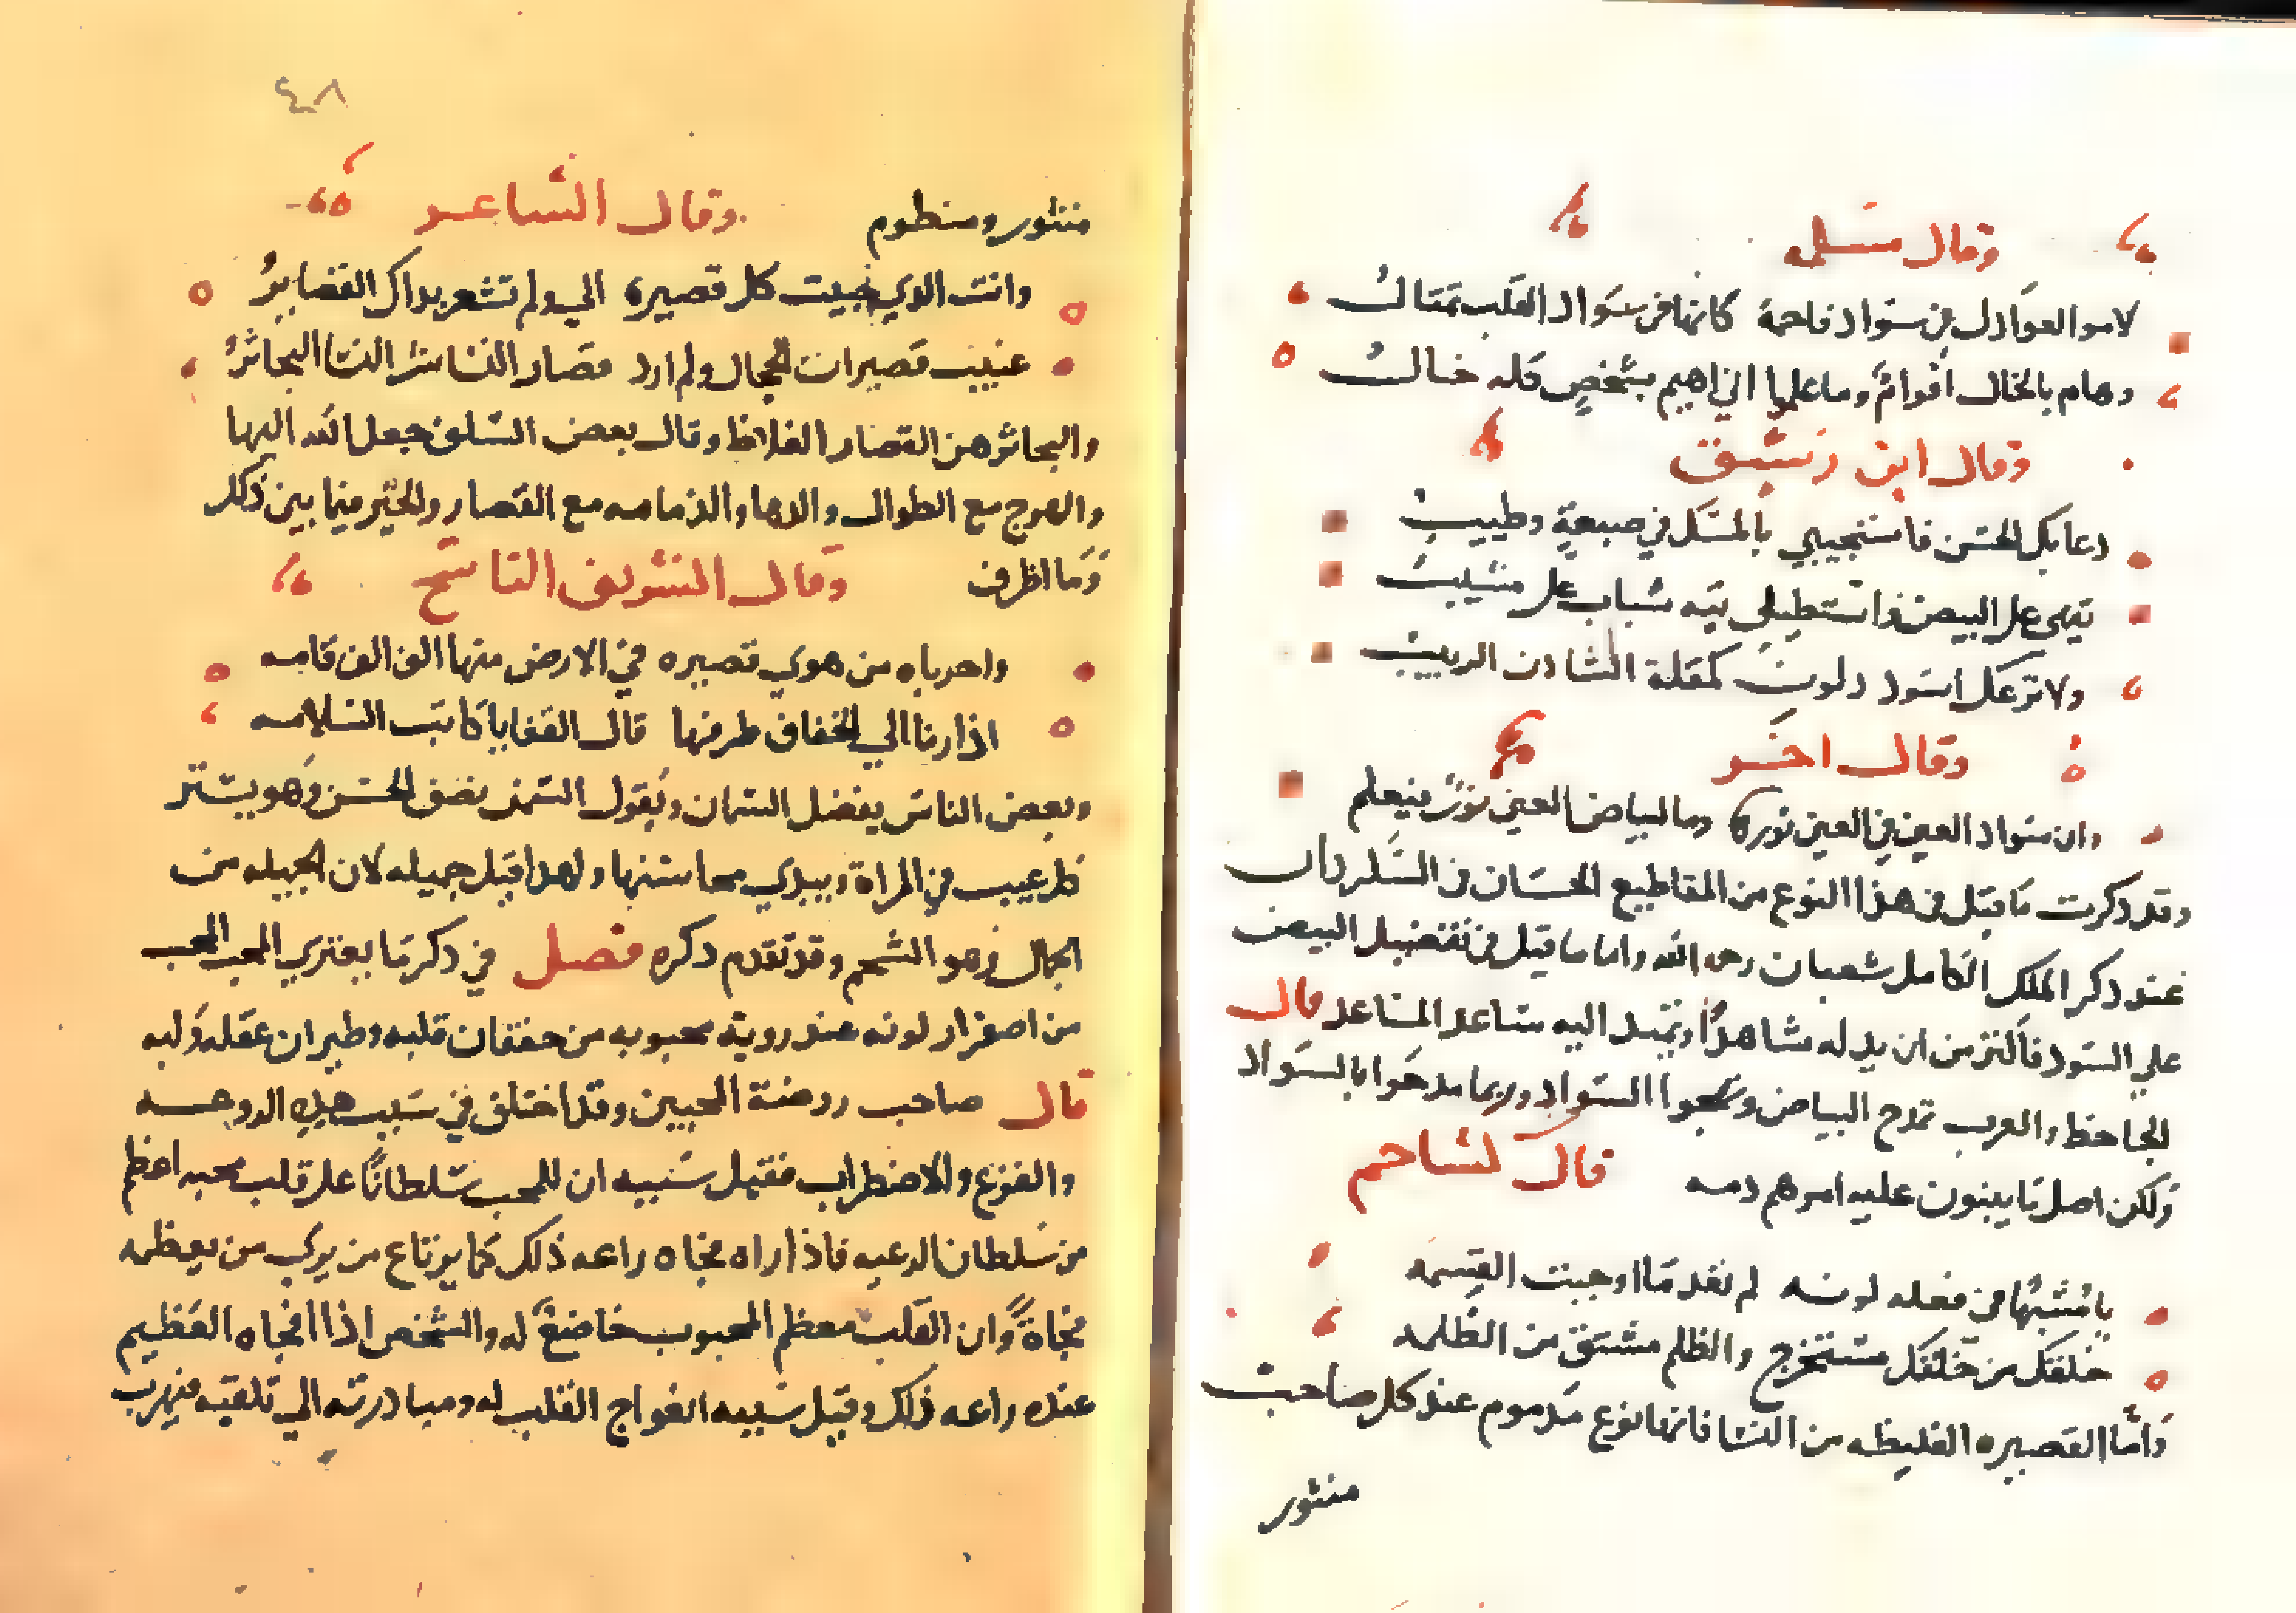 وقال مسلمه
لاموا العوادل في سواد فاحمة كانها في سواد القلب تمتال
وهام بالخال اقوام وما علموا اني اهيم بشخص كله خال
وقال ابن رشيق
دعا بك الحسن فاستجيبي بالمسك في صبغة وطيب
تيهي على البيض واستطيلي تيه شباب على مشيب
ولا يرعك اسوداد لون كمقلة الشادن الربيب
وقال اخر
وان سواد العين في العين نورها وما لبياض العين نور فيعلم
وقد دكرت ما قيل في هذا النوع من المقاطيع الحسان في السكردان
عند دكر الملك الكامل شعبان رحمه الله واما ما قيل في تفضيل البيض
علي السود فاكثر من ان يدله شاهدا ويمتد اليه ساعد المساعد قال
الجاحظ والعرب تمدح البياض وتهجوا السواد وربما مدحوا بالسواد
ولكن اصل ما يبنون عليه امرهم دمه قال كشاجم
يا مشبها في فعله لونه لم تعد ما اوجبت القسمه
خلقك من خلقك مستخرج والظلم مشتق من الظلمه
واما القصيره الغليظه من النسا فانها نوع مدموم عند كل صاحب
منثور
٤٨
منثور ومنظوم وقال الشاعر
وانت الدي حببت كل قصيرة الي ولم تشعر بداك القصاير
عنيت قصيرات الحجال ولم ارد قصار النسا شر النسا البحاتر
والبحاتر هن القصار الغلاظ وقال بعض السلف جعل الله البها
والهوج مع الطوال والدها والدمامه مع القصار والخير فيما بين ذلك
وما اظرف وقال الشريف الناسخ
واحرباه من هوي قصيره في الارض منها الف الف قامه
اذا رنا الي الخفاف طرفها قال القفا يا كاتب السلامه
وبعض الناس يفضل السمان ويقول السمن نصف الحسن وهو يستر
كل عيب في المراة ويبدي محاسنها ولهدا قيل جميله لان الجميله من
الجمال وهو الشحم وقد تقدم دكره فصل في دكر ما يعتري المحب
من اصفرار لونه عند رويه محبوبه من خفقان قلبه وطيران عقله ولبه
قال صاحب روضة المحبين وقد اختلف في سبب هده الروعه
والفزع والاضطراب فقيل سببه ان للمحب سلطانا على قلب محبه اعظم
من سلطان الرعيه فاذا راه فجاه راعه ذلك كما يرتاع من يري من يعظمه
فجاة وان القلب معظم المحبوب خاضع له والشخص اذا افجاه العظيم
عنده راعه ذلك وقيل سببه انفراج القلب له ومبادرته الي تلقيه فيهرب